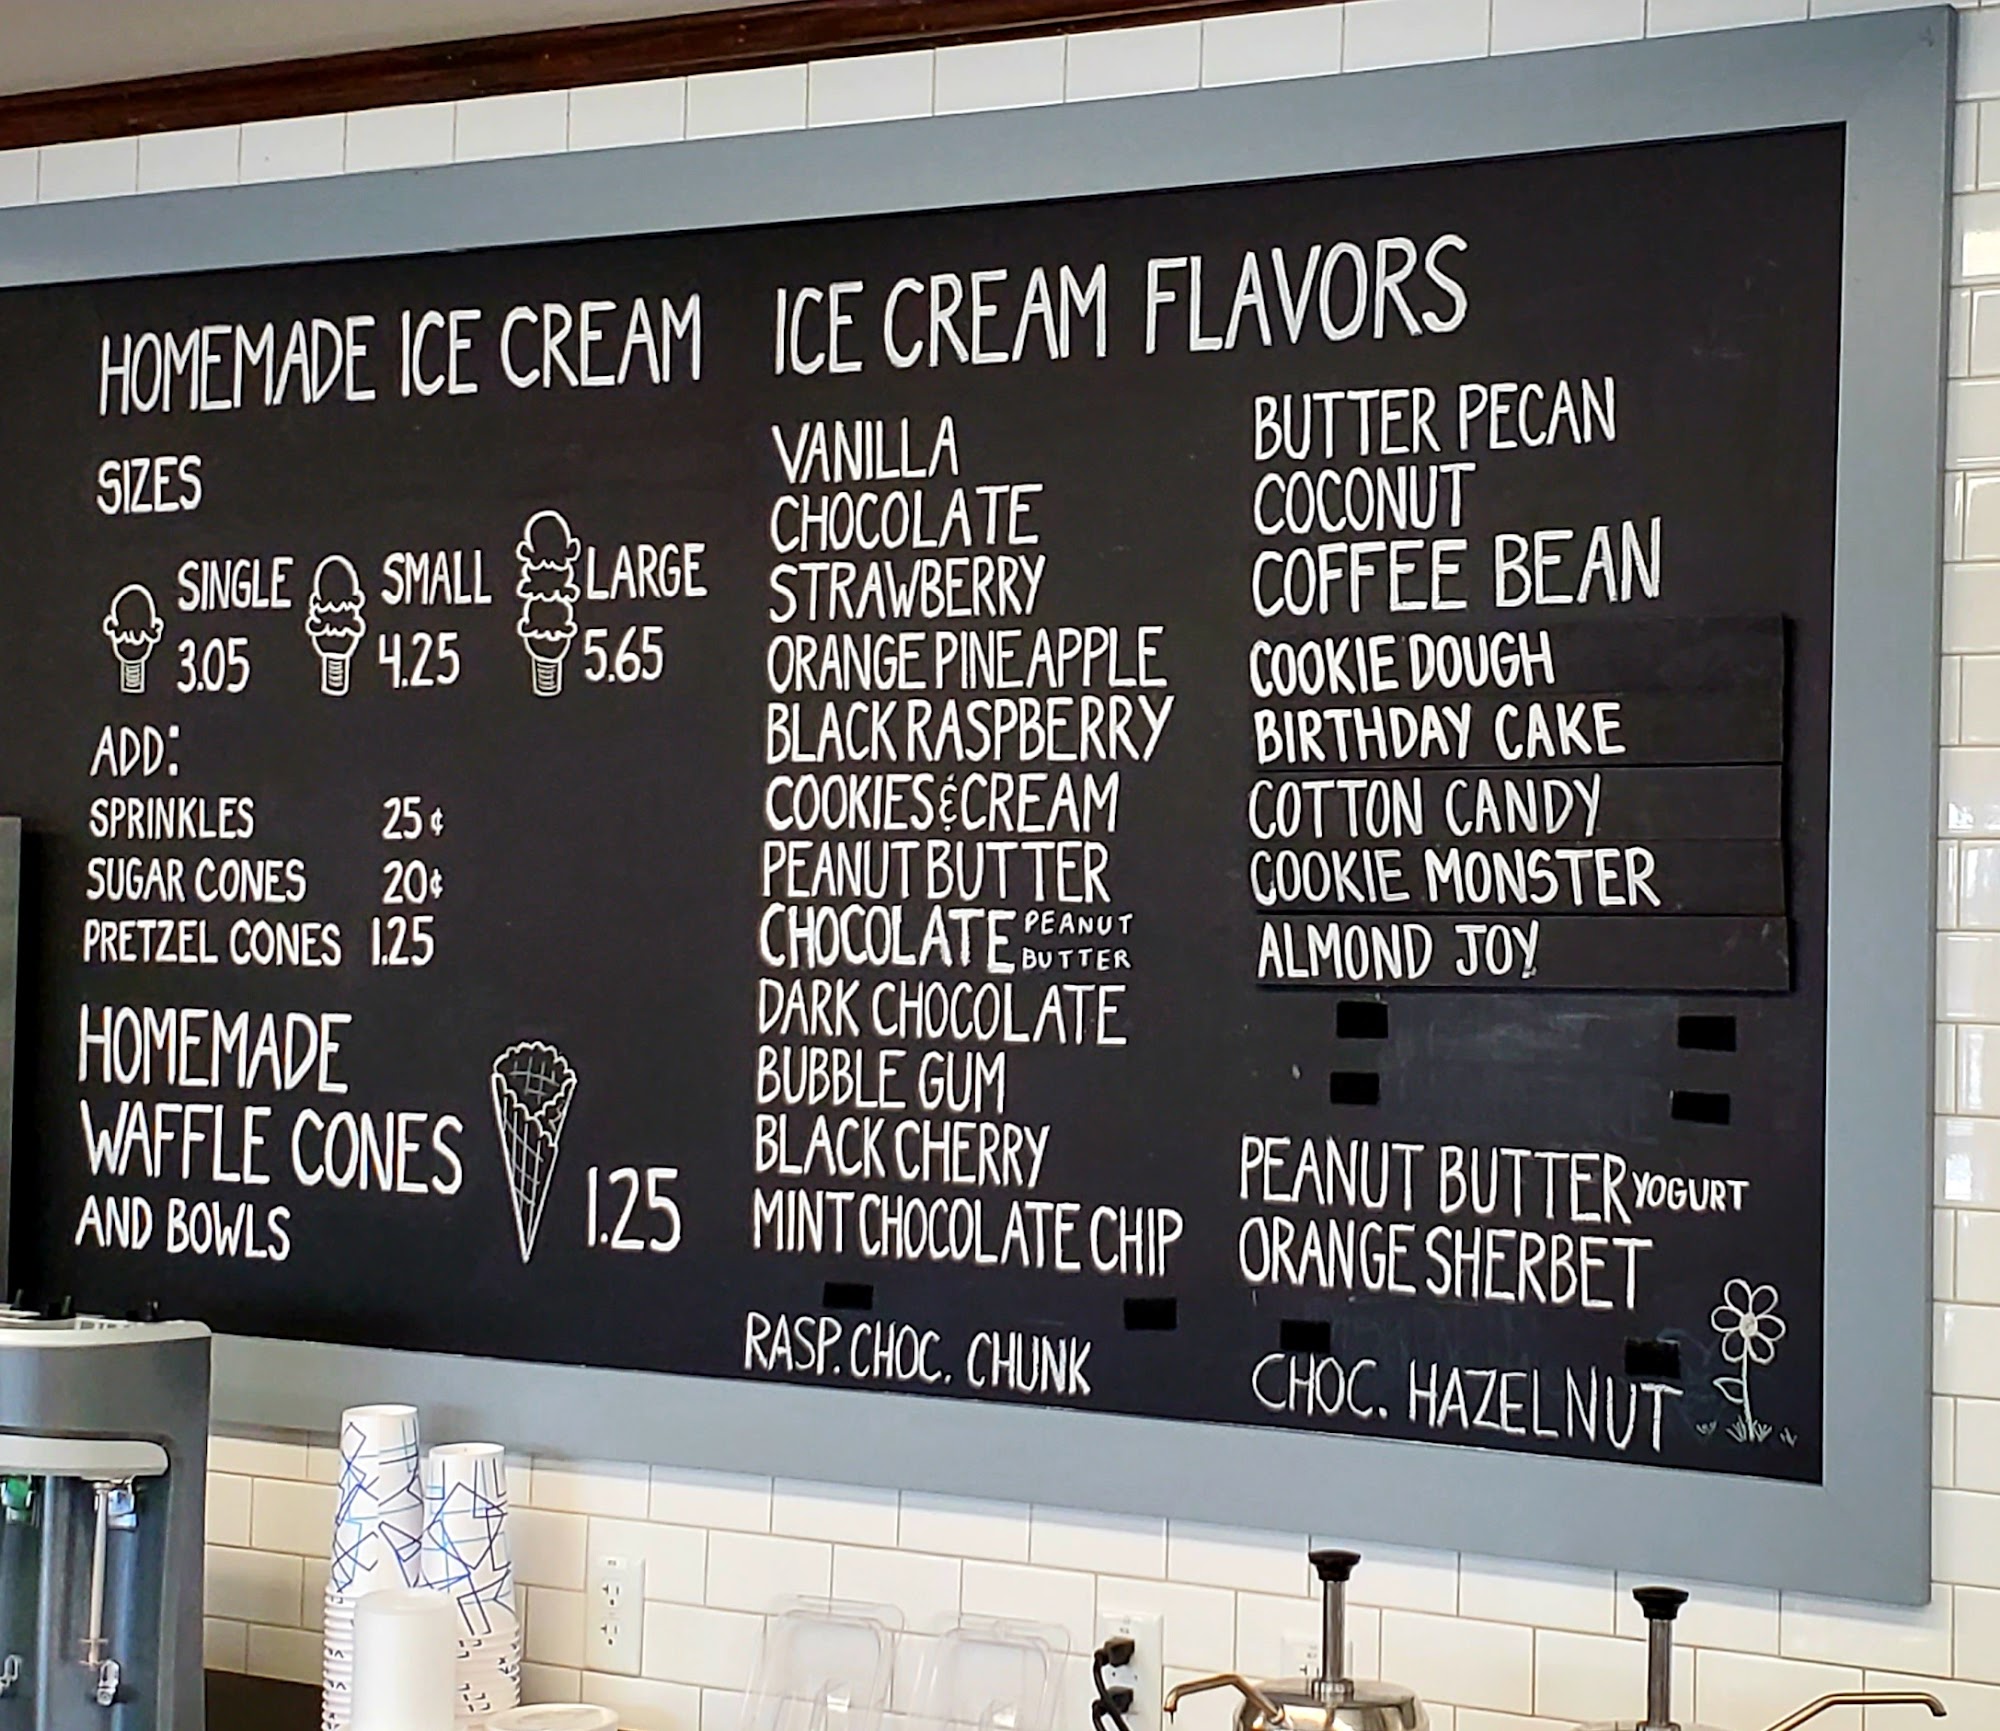 HOMEMADE ICE CREAM
SIZES
SINGLE
3.05
SMALL
4.25
LARGE
5.65
ADD:
SPRINKLES 25¢
SUGAR CONES 20¢
PRETZEL CONES 1.25
HOMEMADE
WAFFLE CONES
AND BOWLS
1.25
ICE CREAM FLAVORS
VANILLA
CHOCOLATE
STRAWBERRY
ORANGE PINEAPPLE
BLACK RASPBERRY
COOKIES & CREAM
PEANUT BUTTER
CHOCOLATE PEANUT
BUTTER
DARK CHOCOLATE
BUBBLE GUM
BLACK CHERRY
MINT CHOCOLATE CHIP
RASP. CHOC. CHUNK
BUTTER PECAN
COCONUT
COFFEE BEAN
COOKIE DOUGH
BIRTHDAY CAKE
COTTON CANDY
COOKIE MONSTER
ALMOND JOY
PEANUT BUTTER YOGURT
ORANGE SHERBET
CHOC. HAZELNUT